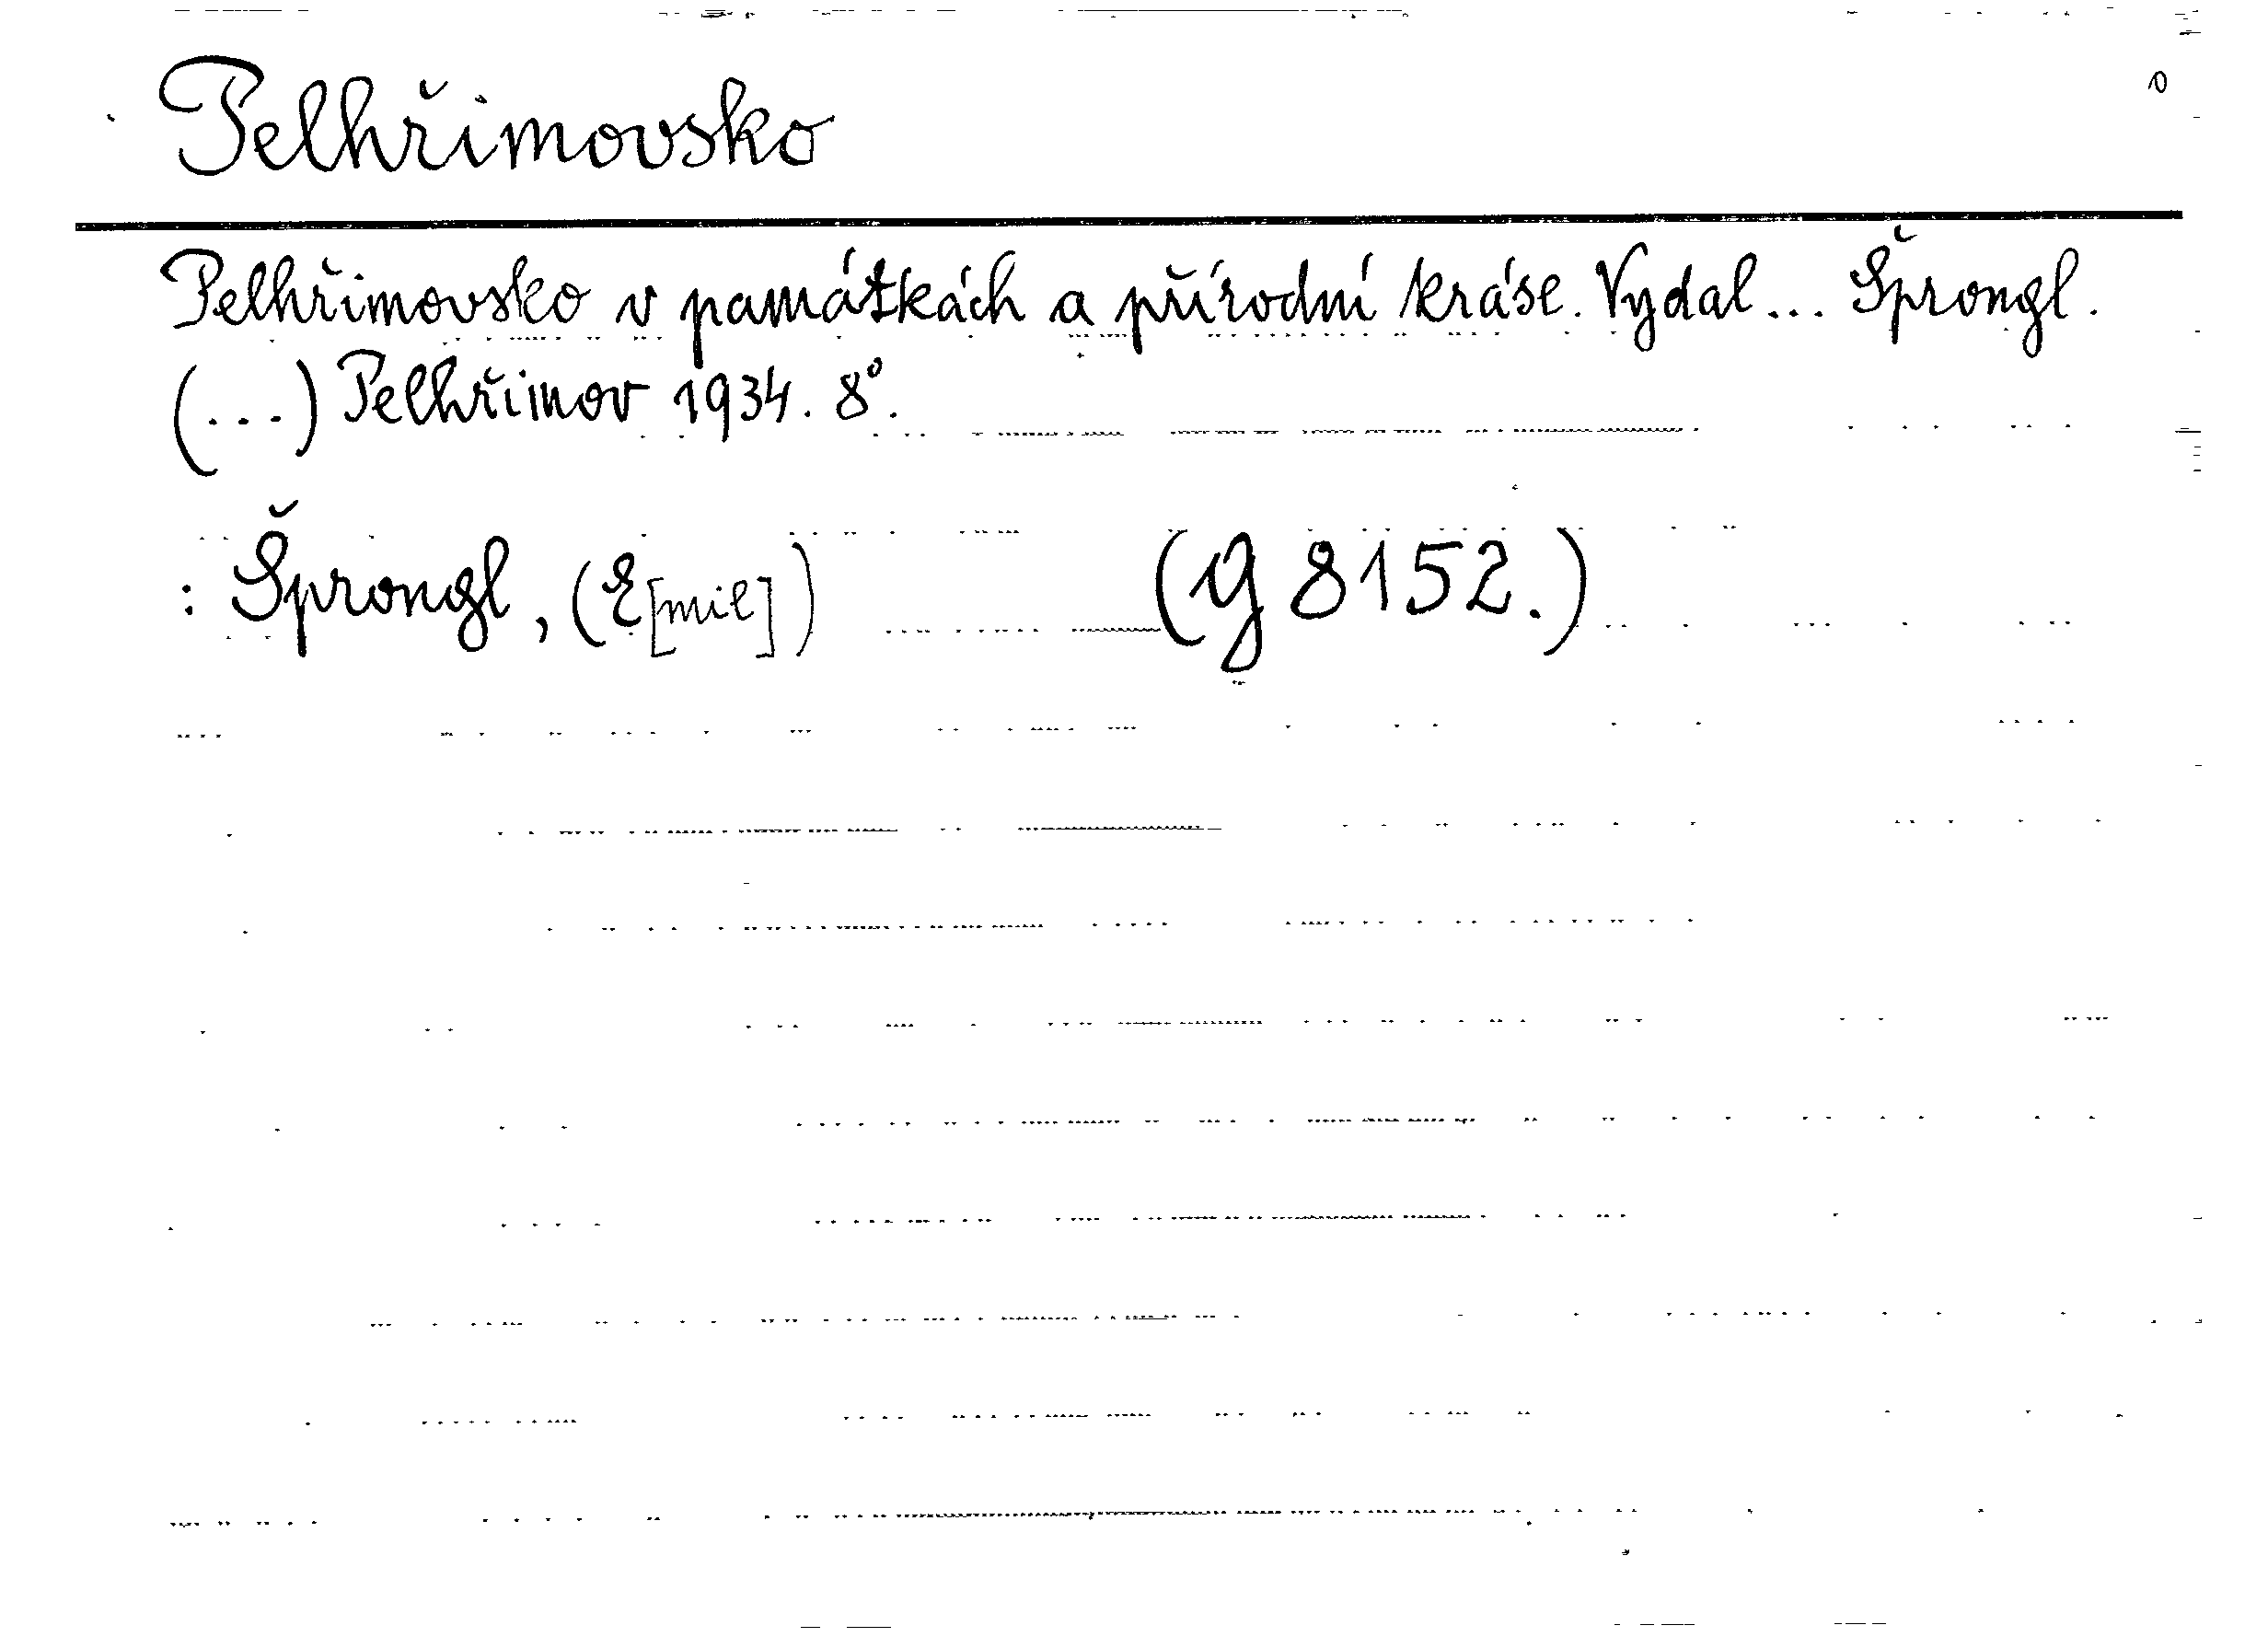 Pelhřimovsko
Pelhřimovsko v památkách a přírodní kráse. Vydal ... Šprongl.
(...) Pelhřimov 1934. 8°.
: Šprongl, (E[mil]) (G 8152.)